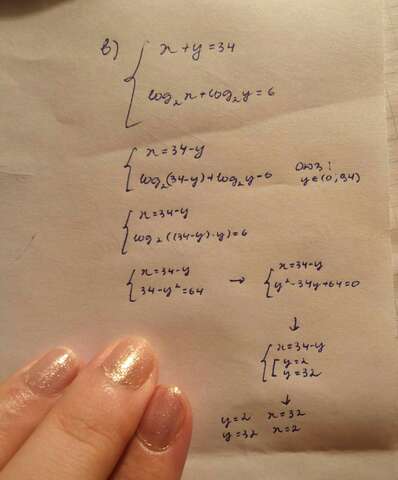 в) { x + y = 34
log₂x + log₂y = 6
{ x = 34-y
log₂(34-y) + log₂y = 6 ОДЗ:
y ∈ (0, 34)
{ x = 34-y
log₂((34-y)·y) = 6
{ x = 34-y → { x = 34-y
34-y² = 64 y² - 34y + 64 = 0
↓
{ x = 34-y
[ y = 2
y = 32
↓
y = 2 x = 32
y = 32 x = 2